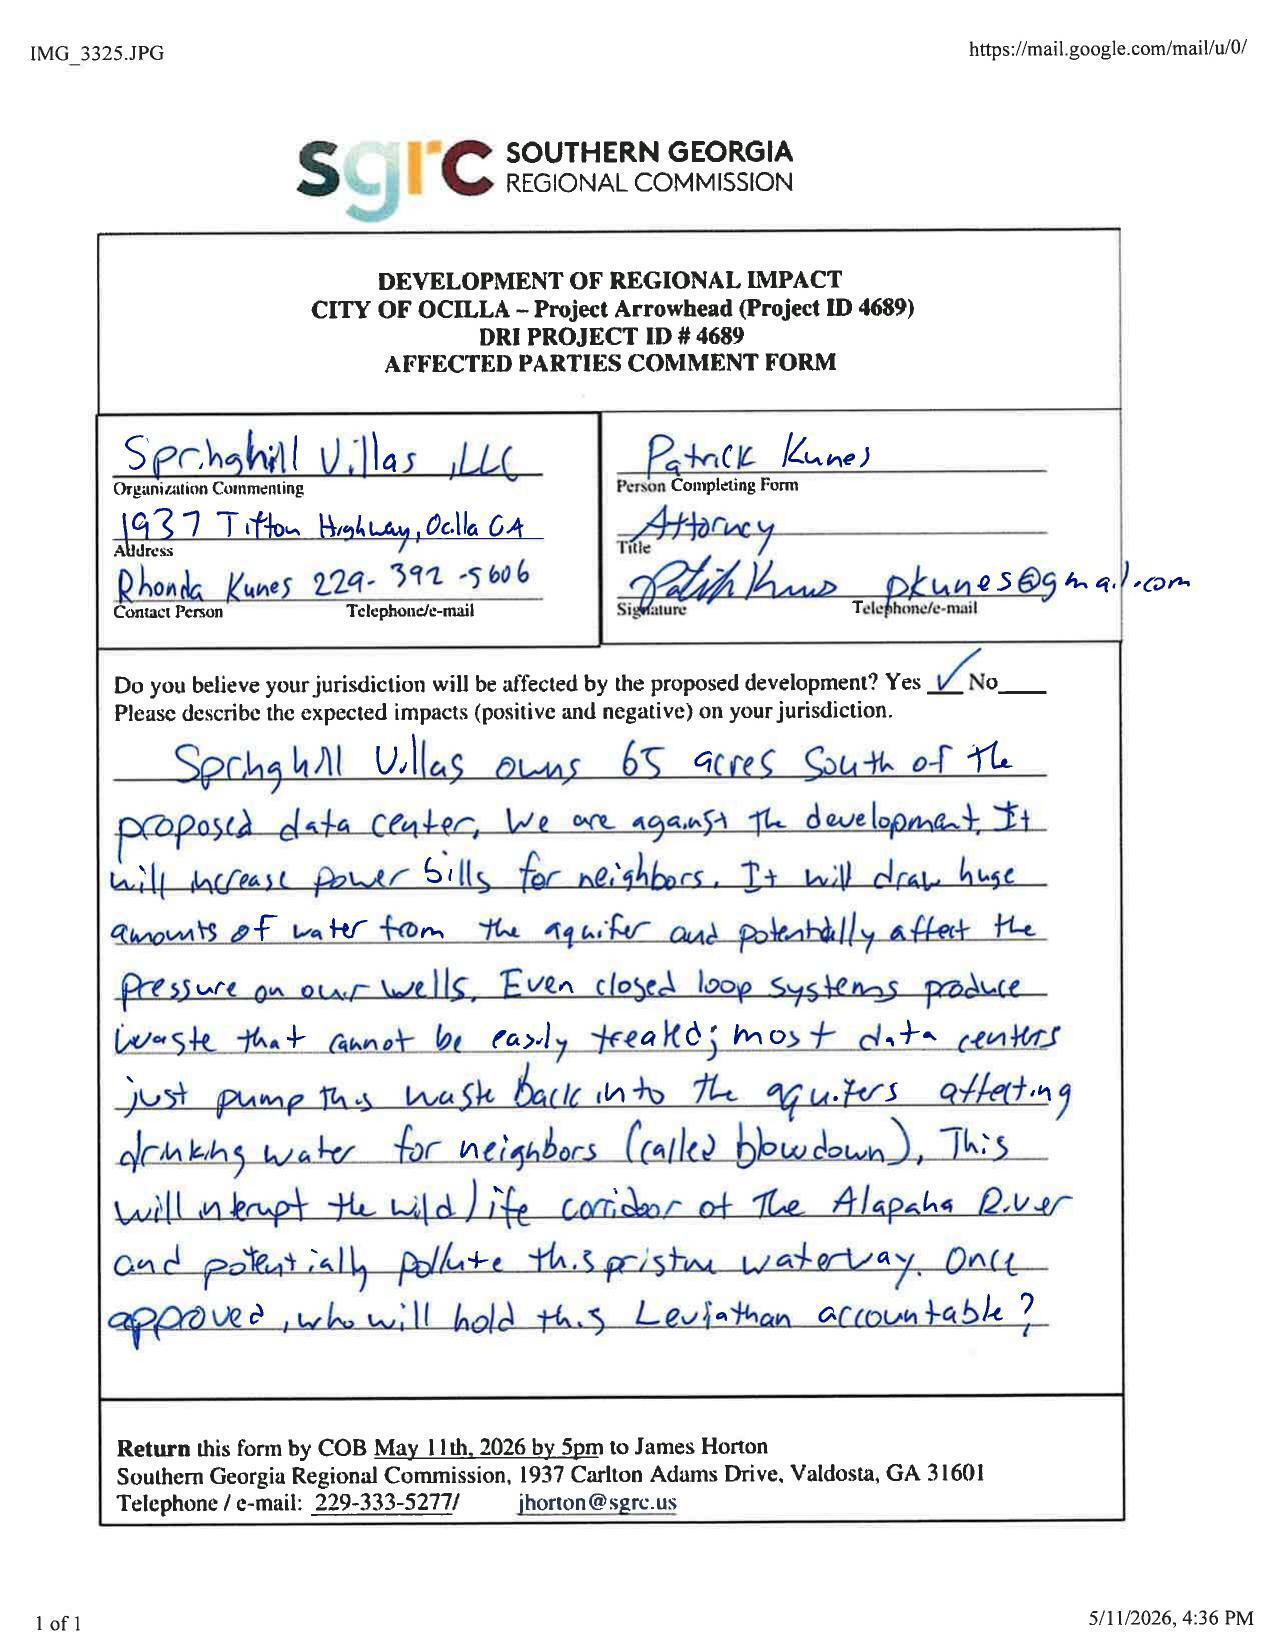 IMG_3325.JPG
https://mail.google.com/mail/u/0/
sgrc SOUTHERN GEORGIA
REGIONAL COMMISSION
DEVELOPMENT OF REGIONAL IMPACT
CITY OF OCILLA – Project Arrowhead (Project ID 4689)
DRI PROJECT ID # 4689
AFFECTED PARTIES COMMENT FORM
Springhill Villas, LLC
Organization Commenting
1937 Tifton Highway, Ocilla GA
Address
Rhonda Kunes 229-392-5606
Contact Person Telephone/e-mail
Patrick Kunes
Person Completing Form
Attorney
Title
Patrick Kunes pkunes@gmail.com
Signature Telephone/e-mail
Do you believe your jurisdiction will be affected by the proposed development? Yes ✓ No
Please describe the expected impacts (positive and negative) on your jurisdiction.
Springhill Villas owns 65 acres South of the
proposed data center. We are against the development. It
will increase power bills for neighbors. It will draw huge
amounts of water from the aquifer and potentially affect the
pressure on our wells. Even closed loop systems produce
waste that cannot be easily treated; most data centers
just pump this waste back into the aquifers affecting
drinking water for neighbors (called blowdown). This
will interupt the wildlife corridor of the Alapaha River
and potentially pollute this pristine waterway. Once
approved, who will hold this Leviathan accountable?
Return this form by COB May 11th, 2026 by 5pm to James Horton
Southern Georgia Regional Commission, 1937 Carlton Adams Drive, Valdosta, GA 31601
Telephone / e-mail: 229-333-5277/ jhorton@sgrc.us
1 of 1
5/11/2026, 4:36 PM